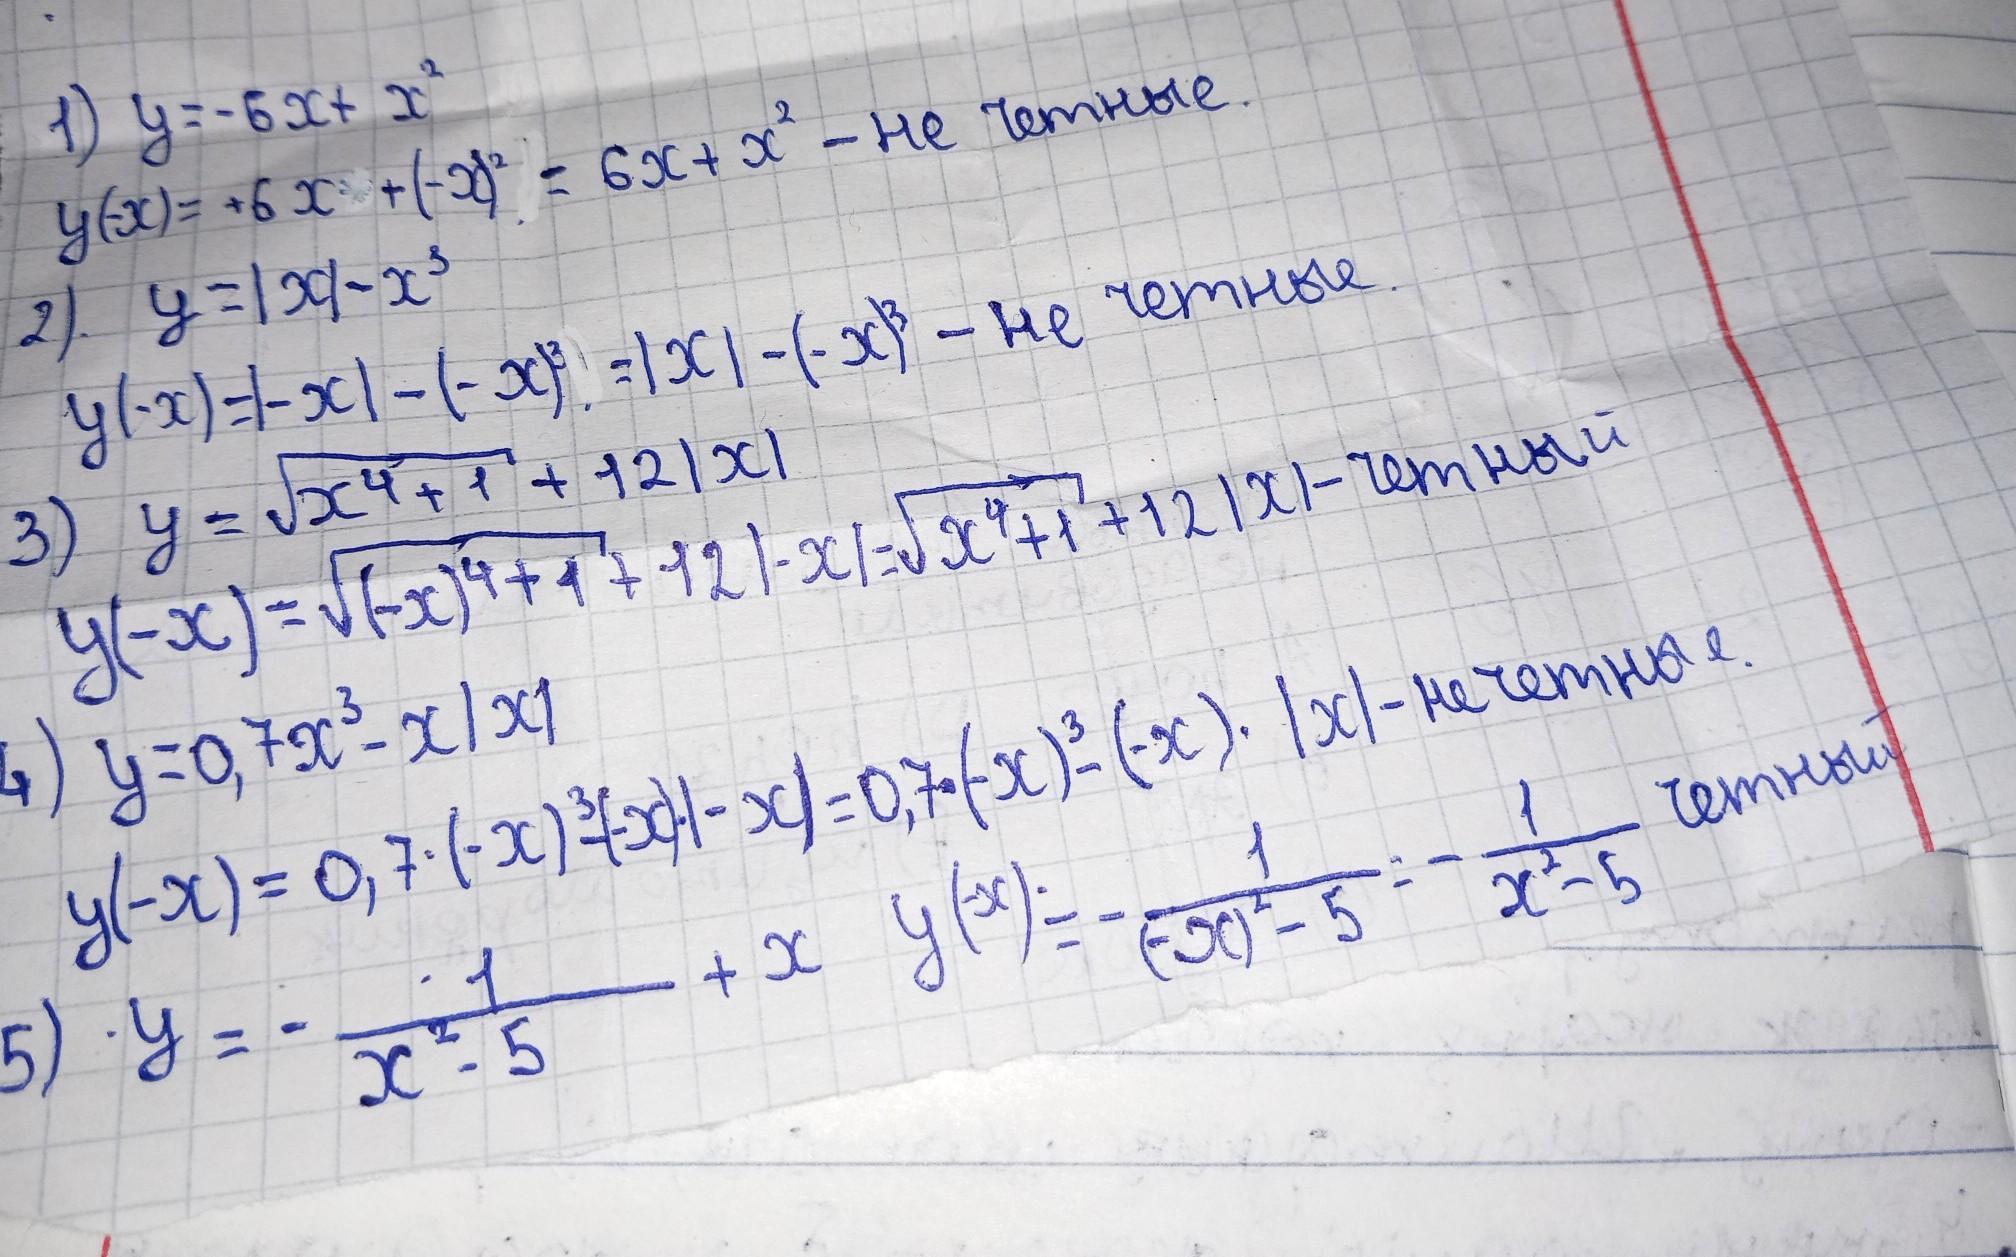 1) y=-6x+x²
y(-x)=+6x+(-x)²=6x+x²-не четные.
2). y=|x|-x³
y(-x)=|-x|-(-x)³=|x|-(-x)³-не четные.
3) y=√(x⁴+1)+12|x|
y(-x)=√((-x)⁴+1)+12|-x|=√(x⁴+1)+12|x|-четный
4) y=0,7x³-x|x|
y(-x)=0,7·(-x)³-(-x)·|-x|=0,7·(-x)³-(-x)·|x|-нечетные.
5) y=-1/(x²-5)+x y(-x)=-1/((-x)²-5)=-1/(x²-5) четный